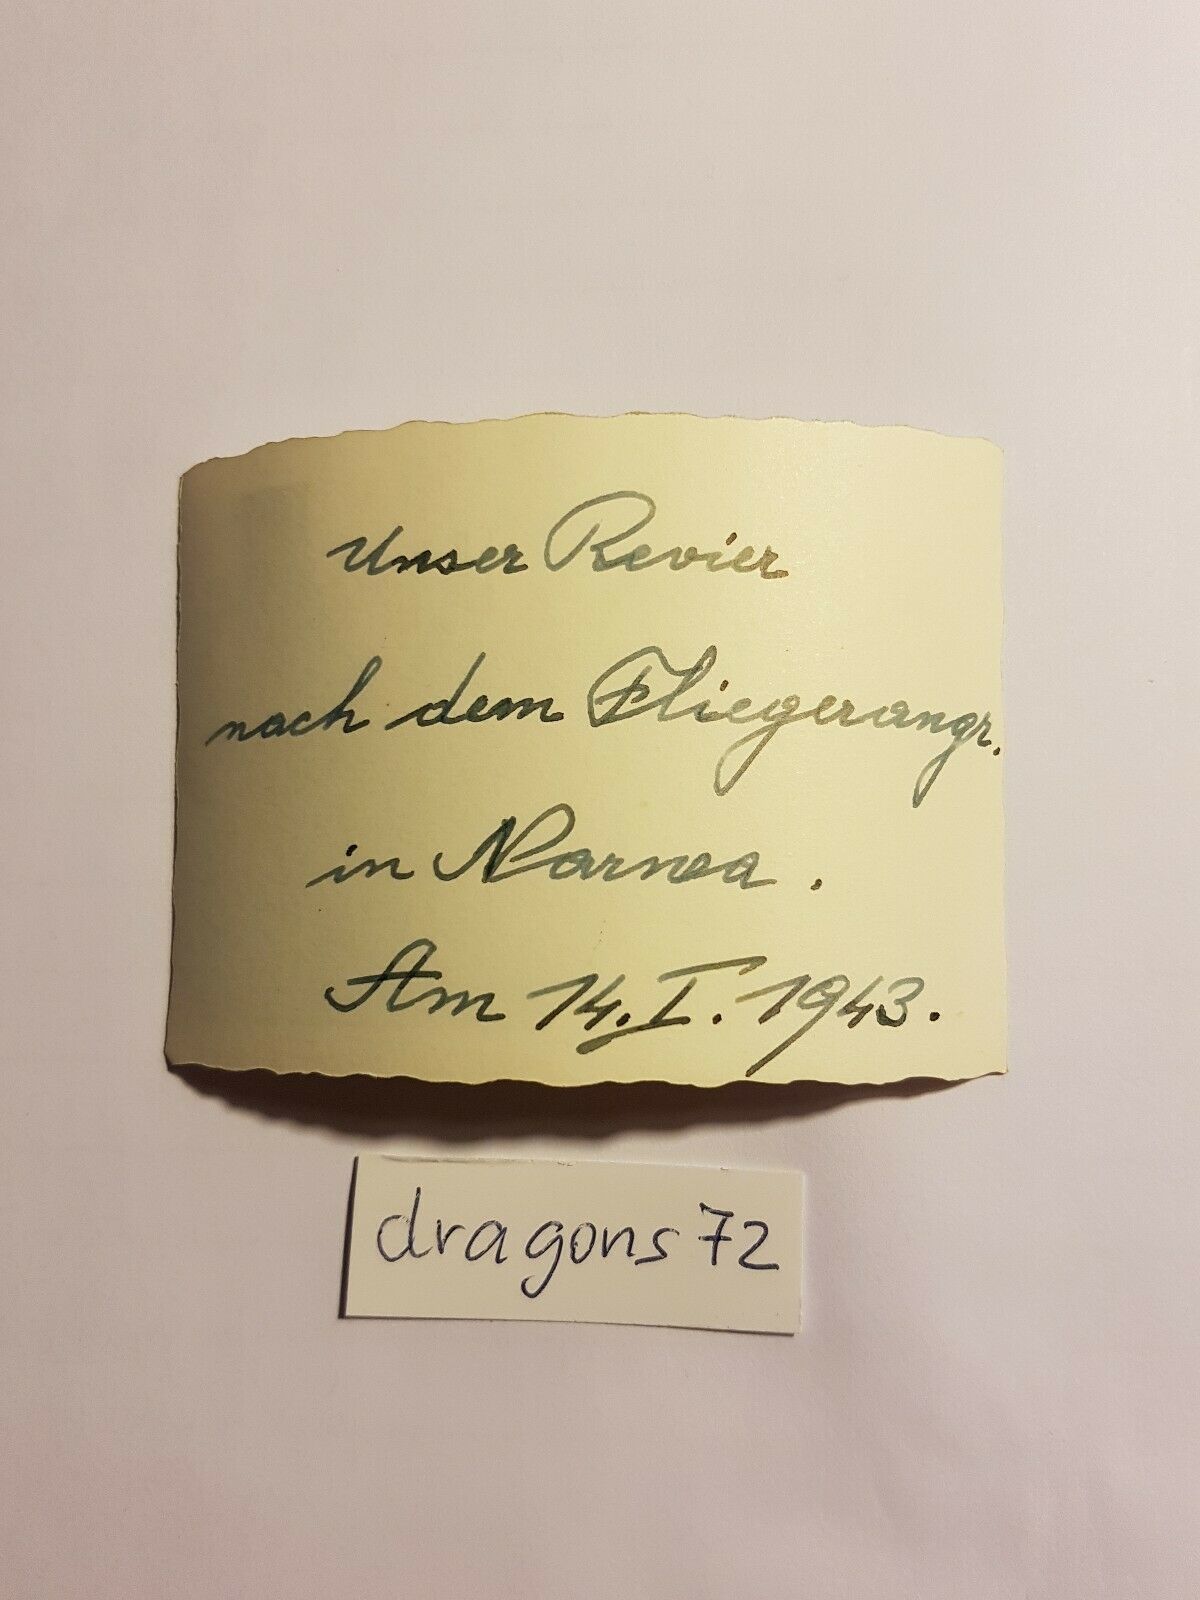 Unser Revier
nach dem Fliegerangr.
in Narwa.
Am 14. I. 1943.
dragons72